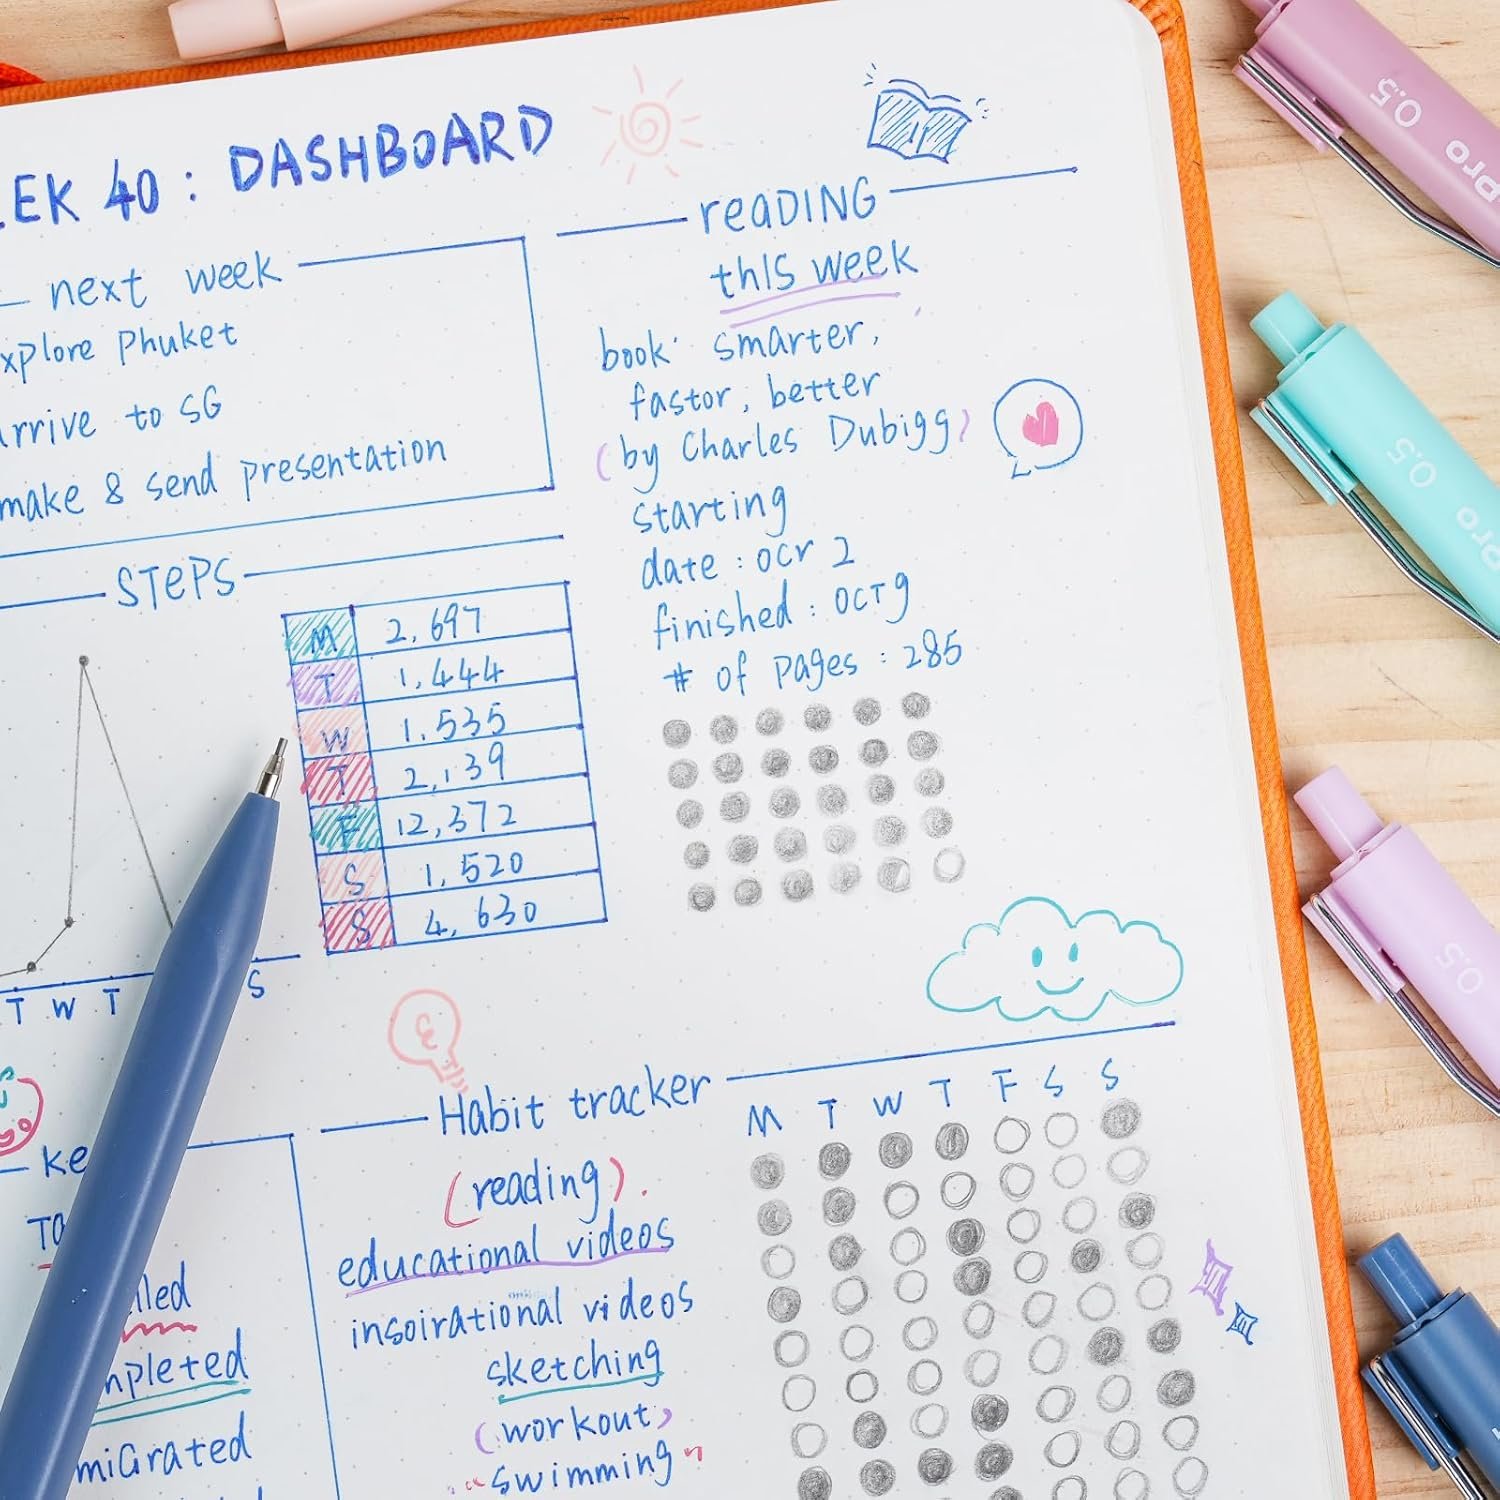 EK 40 : DASHBOARD
next week
xplore Phuket
arrive to SG
make & send presentation
reaDING
thIS week
book: smarter,
fastor, better
(by Charles Dubigg)
starting
date : OCT 2
finished : OCT 9
# of pages : 285
STePS
M 2,697
T 1,444
W 1,535
T 2,139
F 12,372
S 1,520
S 4,630
T W T S
Habit tracker
M T W T F S S
(reading).
educational videos
insoirational videos
sketching
(workout)
"swimming"
Ke
TO
lled
mpleted
miGrated
0.5
Pro
0.5
Pro
0.5